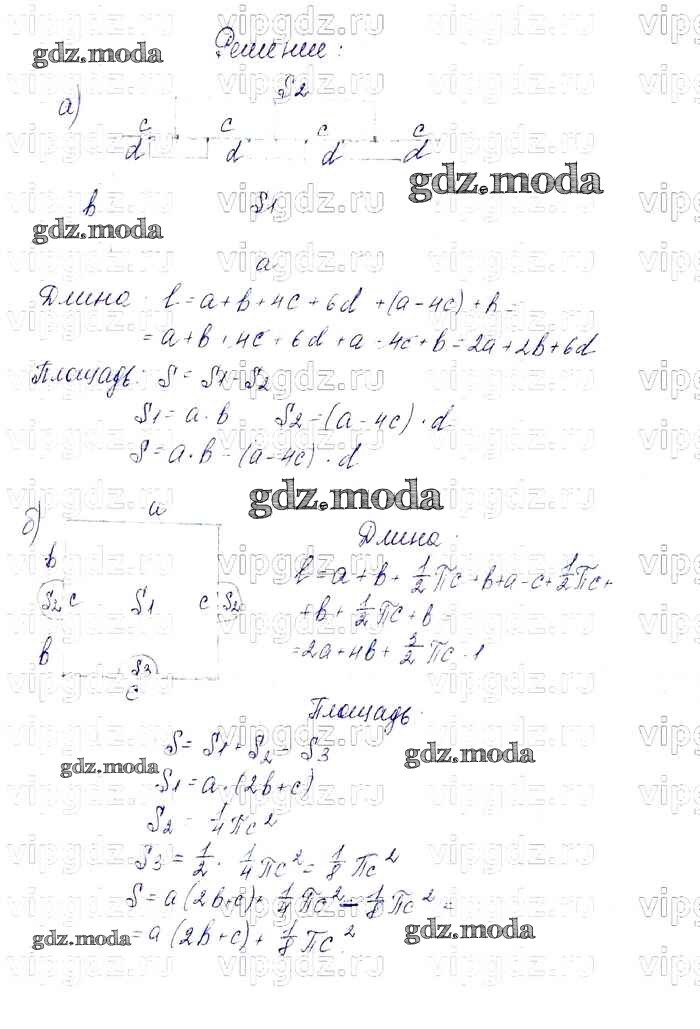 Решение:
а)
S2
c c c c
d d d d
b S1
a
Длина: l = a + b + 4c + 6d + (a - 4c) + b =
= a + b + 4c + 6d + a - 4c + b = 2a + 2b + 6d
Площадь: S = S1 - S2
S1 = a · b S2 = (a - 4c) · d
S = a · b - (a - 4c) · d
б)
a
b
S2 c S1 c S2
b
S3
c
Длина:
l = a + b + 1/2 πc + b + a - c + 1/2 πc +
+ b + 1/2 πc + b =
= 2a + 4b + 3/2 πc - 1
Площадь:
S = S1 + S2 - S3
S1 = a · (2b + c)
S2 = 1/4 πc²
S3 = 1/2 · 1/4 πc² = 1/8 πc²
S = a (2b + c) + 1/4 πc² - 1/8 πc² =
= a (2b + c) + 1/8 πc²
gdz.moda
vipgdz.ru